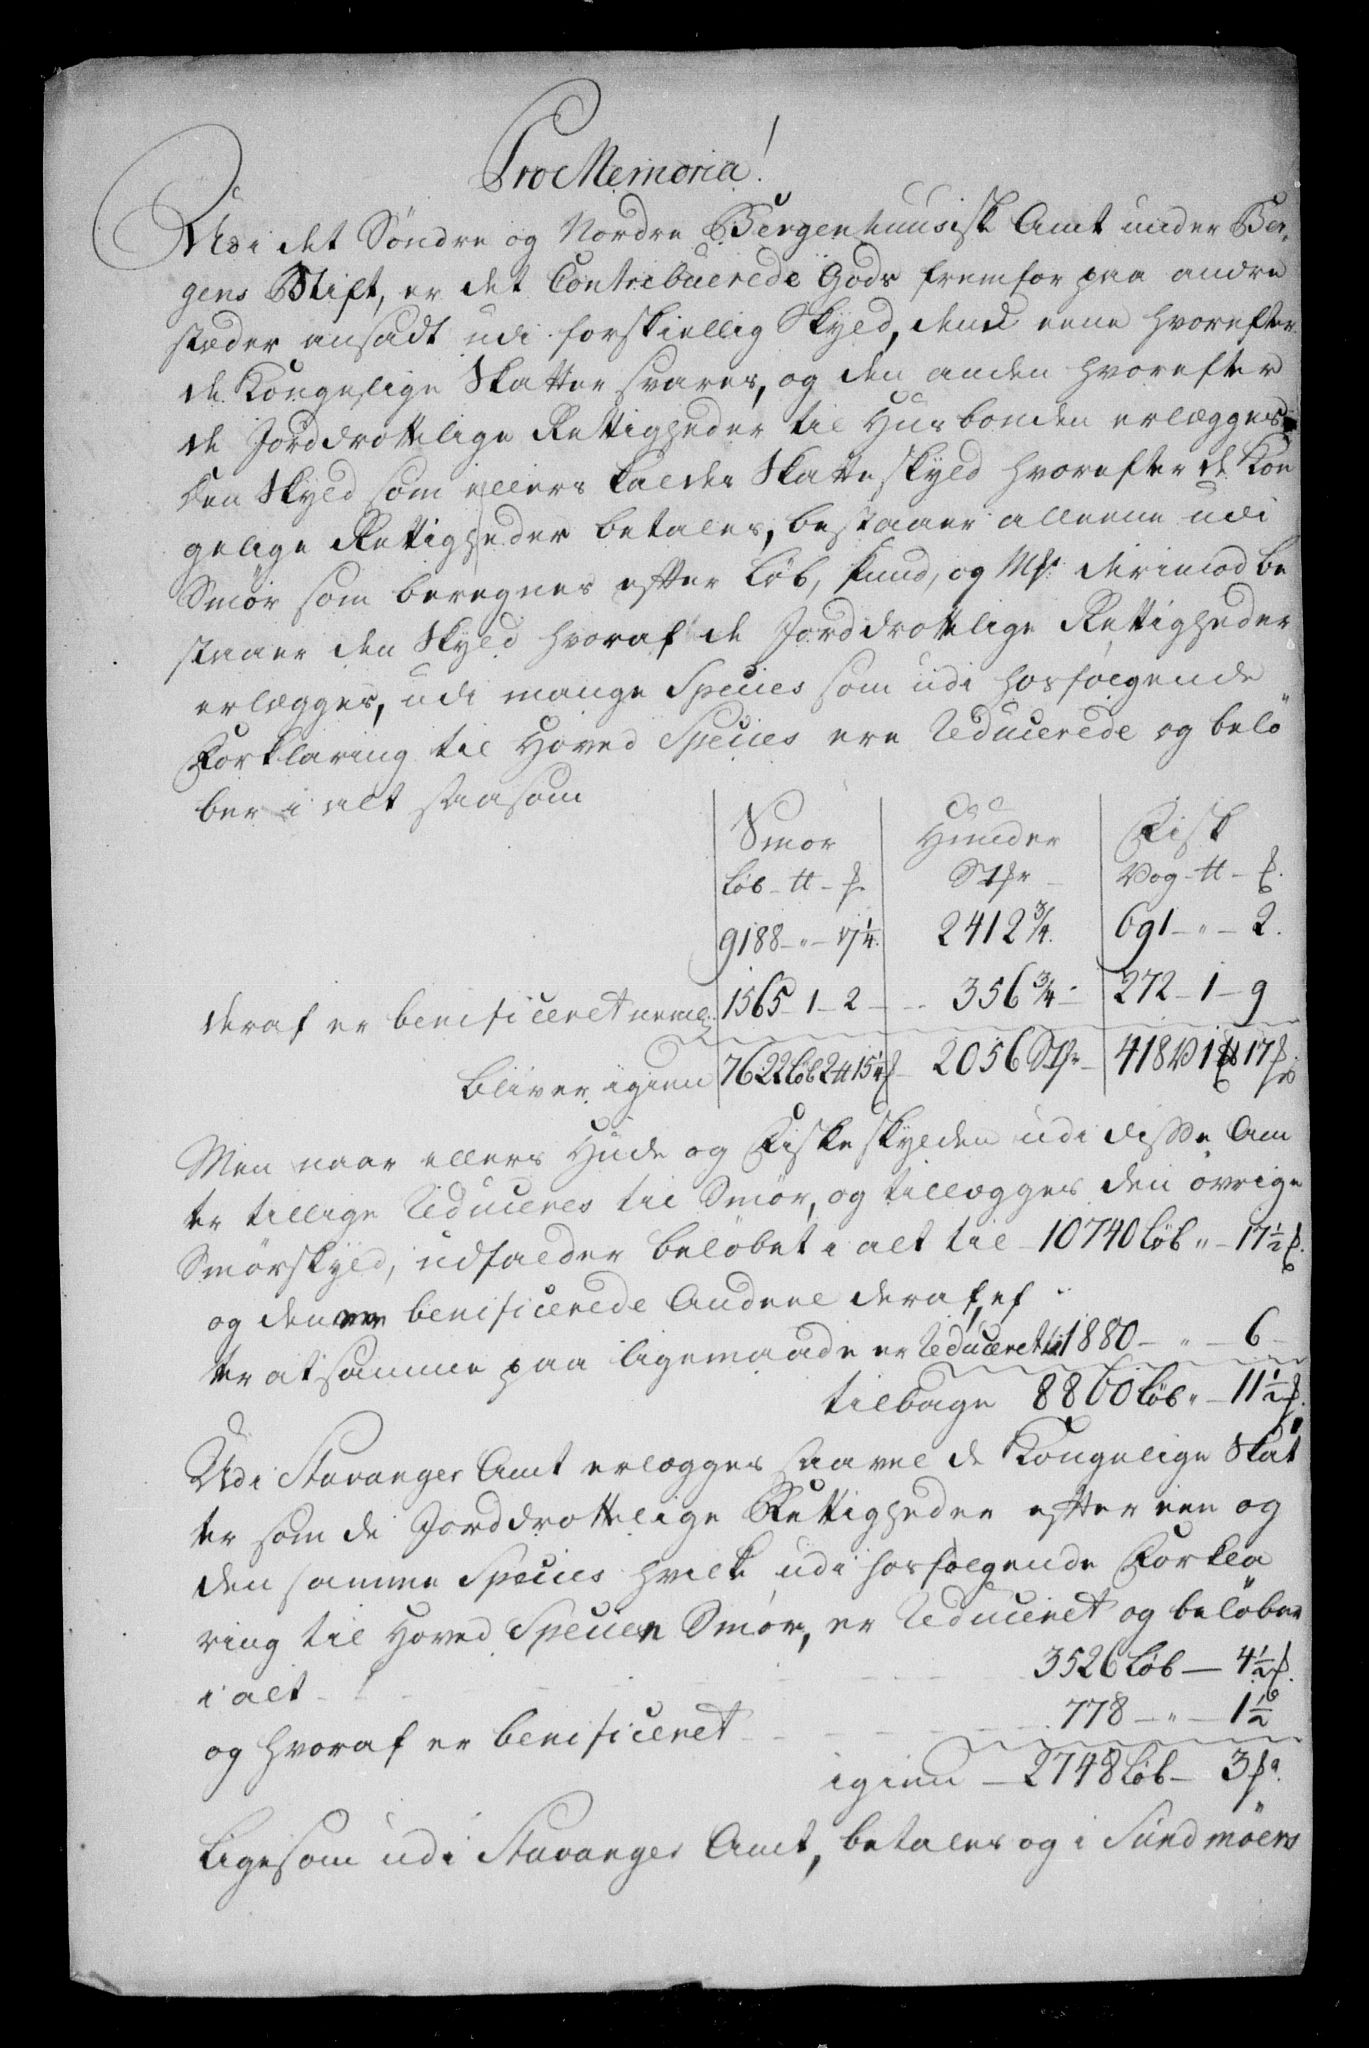 Pro Memoria!
Udi det Söndre og Nordre Bergenhuusisk Amt under Ber,
gens Stift, er det Contribuerede Gods fremfor paa andre
stæder ansadt udi forskiellig Skyld, dend eene hvorefter
de Kongelige Skatter svares, og den anden hvorefter
de Jorddrottelige Rettigheder til Husbonden erlægges.
den Skyld som ellers kaldes Skatteskyld hvorefter de Kon
gelige Rettigheder betales, bestaaer alleene udi
Smör som beregnes efter Löb, pund, og Mrk: derimod be
staaer den Skyld hvoraf de Jorddrottelige Rettigheder
erlægges, udi mange Specier som udi hosfölgende
Forklaring til Hoved Species ere Reducerede og belö
ber i alt saasom
Smör | Huuder | Fisk
Löb - ℔ - | Stkr | Vog - ℔ -
9188 - " - 17¼. | 2412¾. | 691 - " - 2.
deraf er benificeret neml: 1565 - 1 - 2 - | 356¾ - | 272 - 1 - 9
bliver igien 7622 Löb 2 ℔ 15¼ | 2056 Stkr | 418 V 1 17
Men naar ellers Hude og Fiske skylden udi disse Am
ter tillige Reduceres til Smör, og tillægges den övrige
Smörskyld, udfalder belöbet i alt til - 10740 Löb " - 17½
og den benificerede Andeel deraf, ef
ter at samme paa ligemaade er Reduceret til 1880 - " - 6 -
tilbage 8860 Löb " - 11½
Udi Stavanger Amt erlægges saavel de Kongelige Skat
ter som de Jorddrottelige Rettigheder efter een og
den samme Species hvilke udi hosfölgende Forkla
ring til Hoved Specien Smör, er Reduceret og belöber
i alt - 3526 Löb - 4½
og hvoraf er benificeret - 778 - " - 1½
igien - 2748 Löb - 3
Ligesom udi Stavanger Amt, betales og i Sundmöers